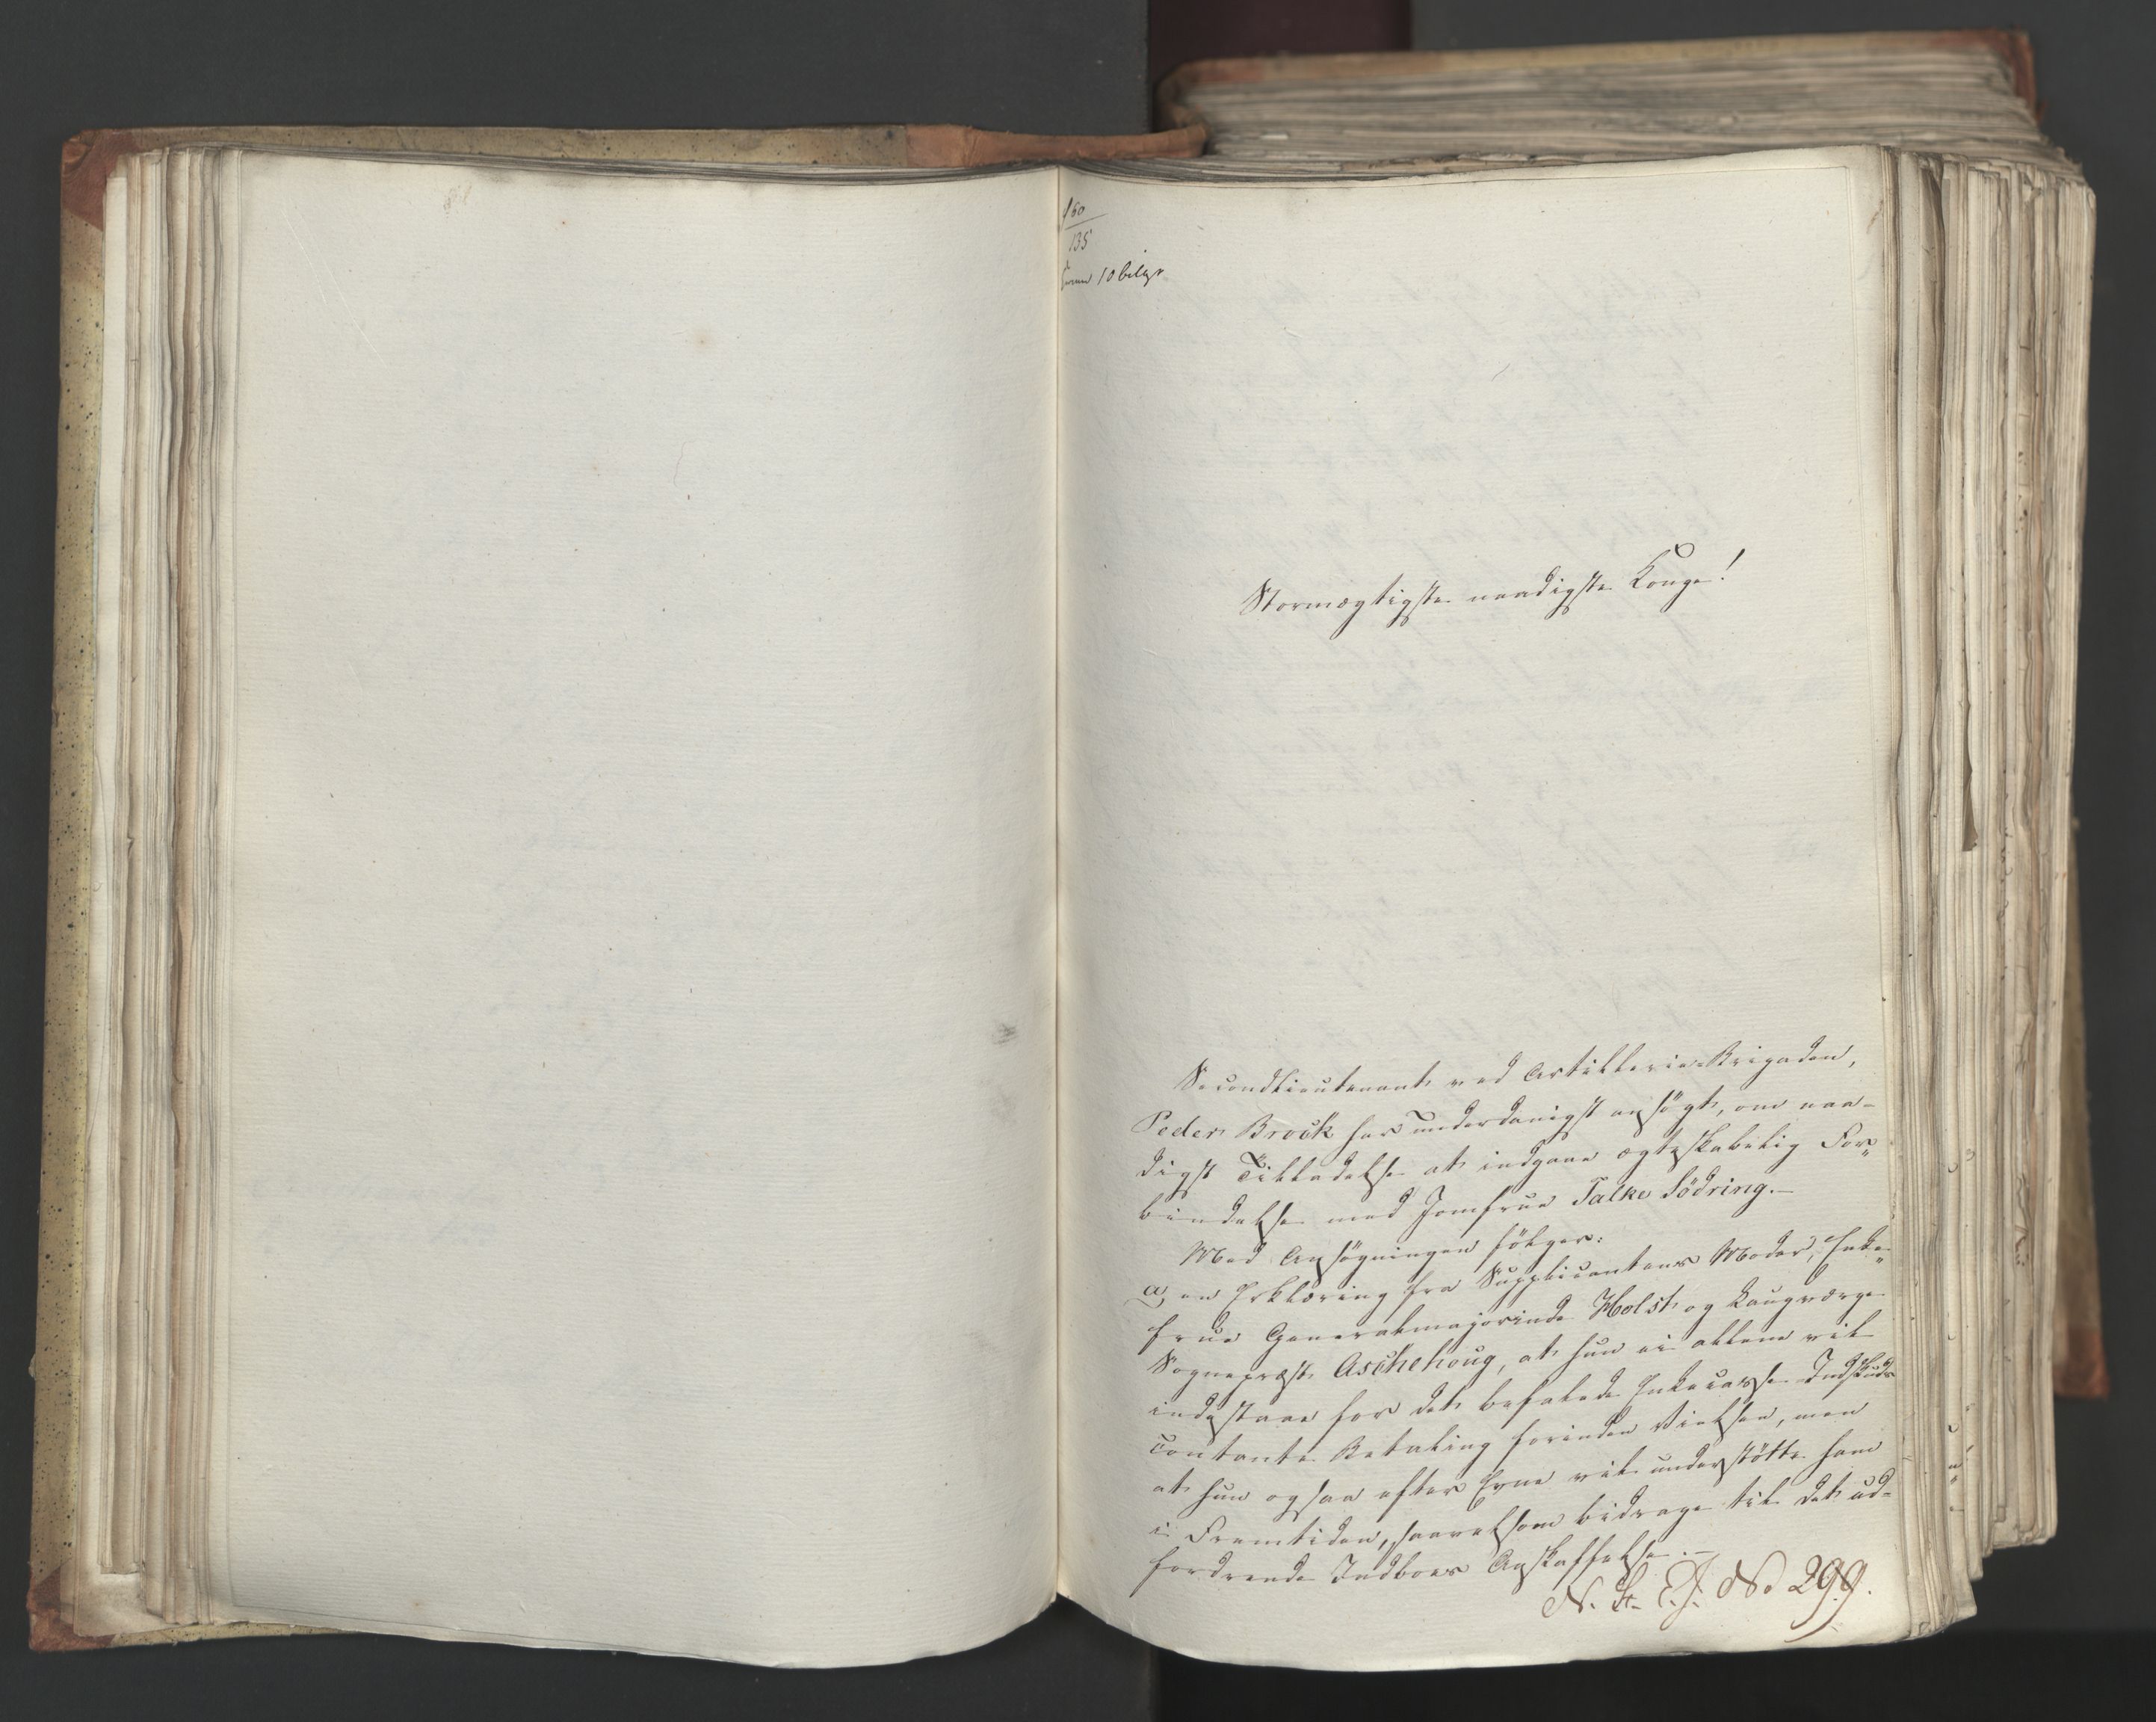 160
135
10 bilage
Stormægtigste naadigste Konge!
Secondlieutenant ved Artillerie-Brigaden,
Peder Brock har underdanigst ansøgt, om naa-
digst Tilladelse at indgaae ægteskabelig For„
bindelse med Jomfrue Talke Södring.—
Med Ansøgningen følger:
a, en Erklæring fra Supplicantens Moder, Enke„
frue Generalmajorinde Holst og Laugværge
Sognepræst Aschehoug, at hun ei allene vil
indestaae for det befalede Enkecasse Indskuds
contante Betaling forinden Vielsen, men
at hun ogsaa efter Evne vil understøtte ham
i Fremtiden, saavelsom bidrage til det ud-
fordrende Indboes Anskaffelse.—
N. St. E. J. No 299.